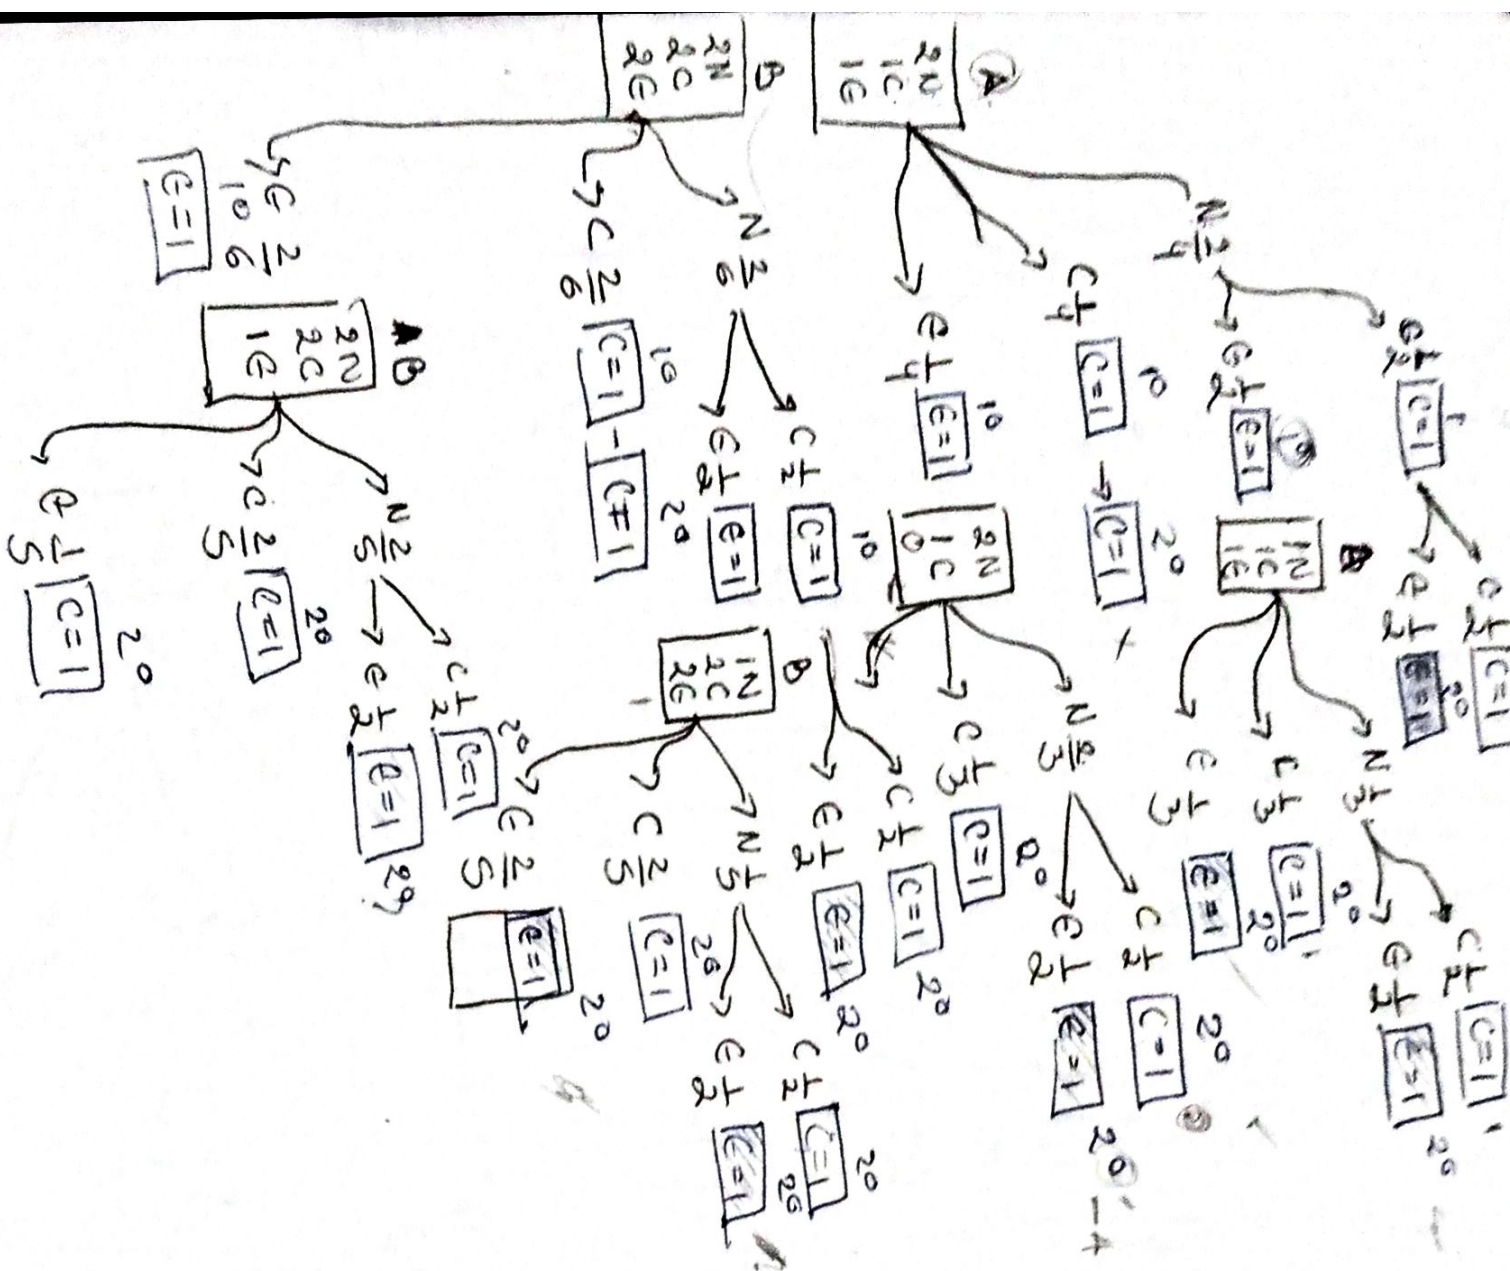 A
2N
1C
1E
N 2/4
C 1/2 C=1
C 1/2 C=1
E 1/2 E=1 2º
E 1/2 E=1 1º
1N
1C
1E
N 1/3
C 1/2 C=1
E 1/2 E=1 2º
C 1/3 C=1 2º
E 1/3 E=1 2º
C 1/4 C=1 1º
C=1 2º
E 1/4 E=1 1º
2N
1C
0
N 2/3
C 1/2 C=1 2º
E 1/2 E=1 2º
C 1/3 C=1 2º
B
2N
2C
2E
N 2/6
C 1/2 C=1 1º
C 1/2 C=1 2º
E 1/2 E=1 2º
E 1/2 E=1
B
1N
2C
2E
N 1/5
C 1/2 C=1 2º
E 1/2 E=1 2º
C 2/5 C=1 2º
E 2/5 E=1 2º
C 2/6 C=1 1º
C=1 2º
E 2/6 1º
E=1
B
2N
2C
1E
N 2/5
C 1/2 C=1 2º
E 1/2 E=1 2º
C 2/5 C=1 2º
E 1/5 C=1 2º